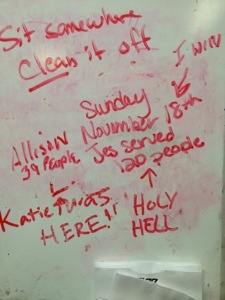 Sit somewhere
Clean it off
I WIN
Sunday
November 18th
Jes served
120 people
Allison
39 People
Katie
HERE!!
HOLY
HELL